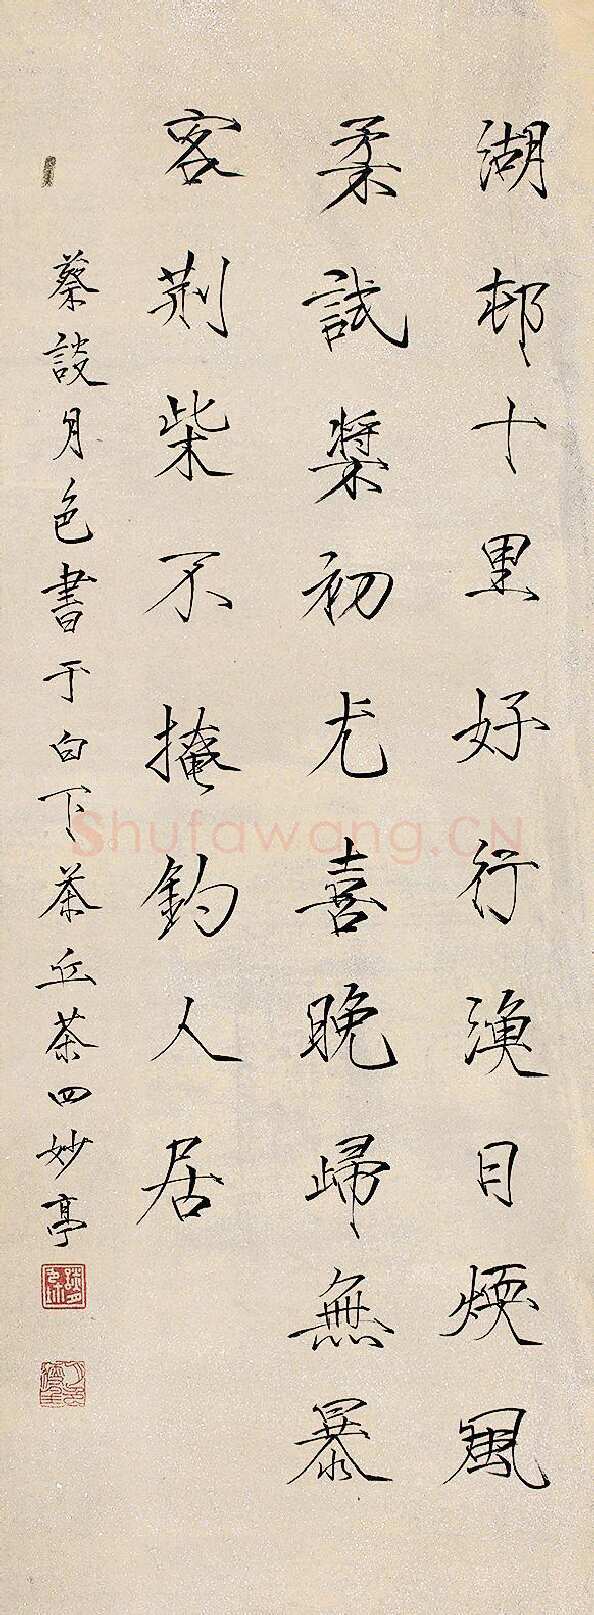 湖邨十里好行漁目煙風
柔試槳初尤喜晚歸無暴
客荆柴不掩釣人居
蔡談月色書于白下茶丘茶四妙亭
Shufawang.CN